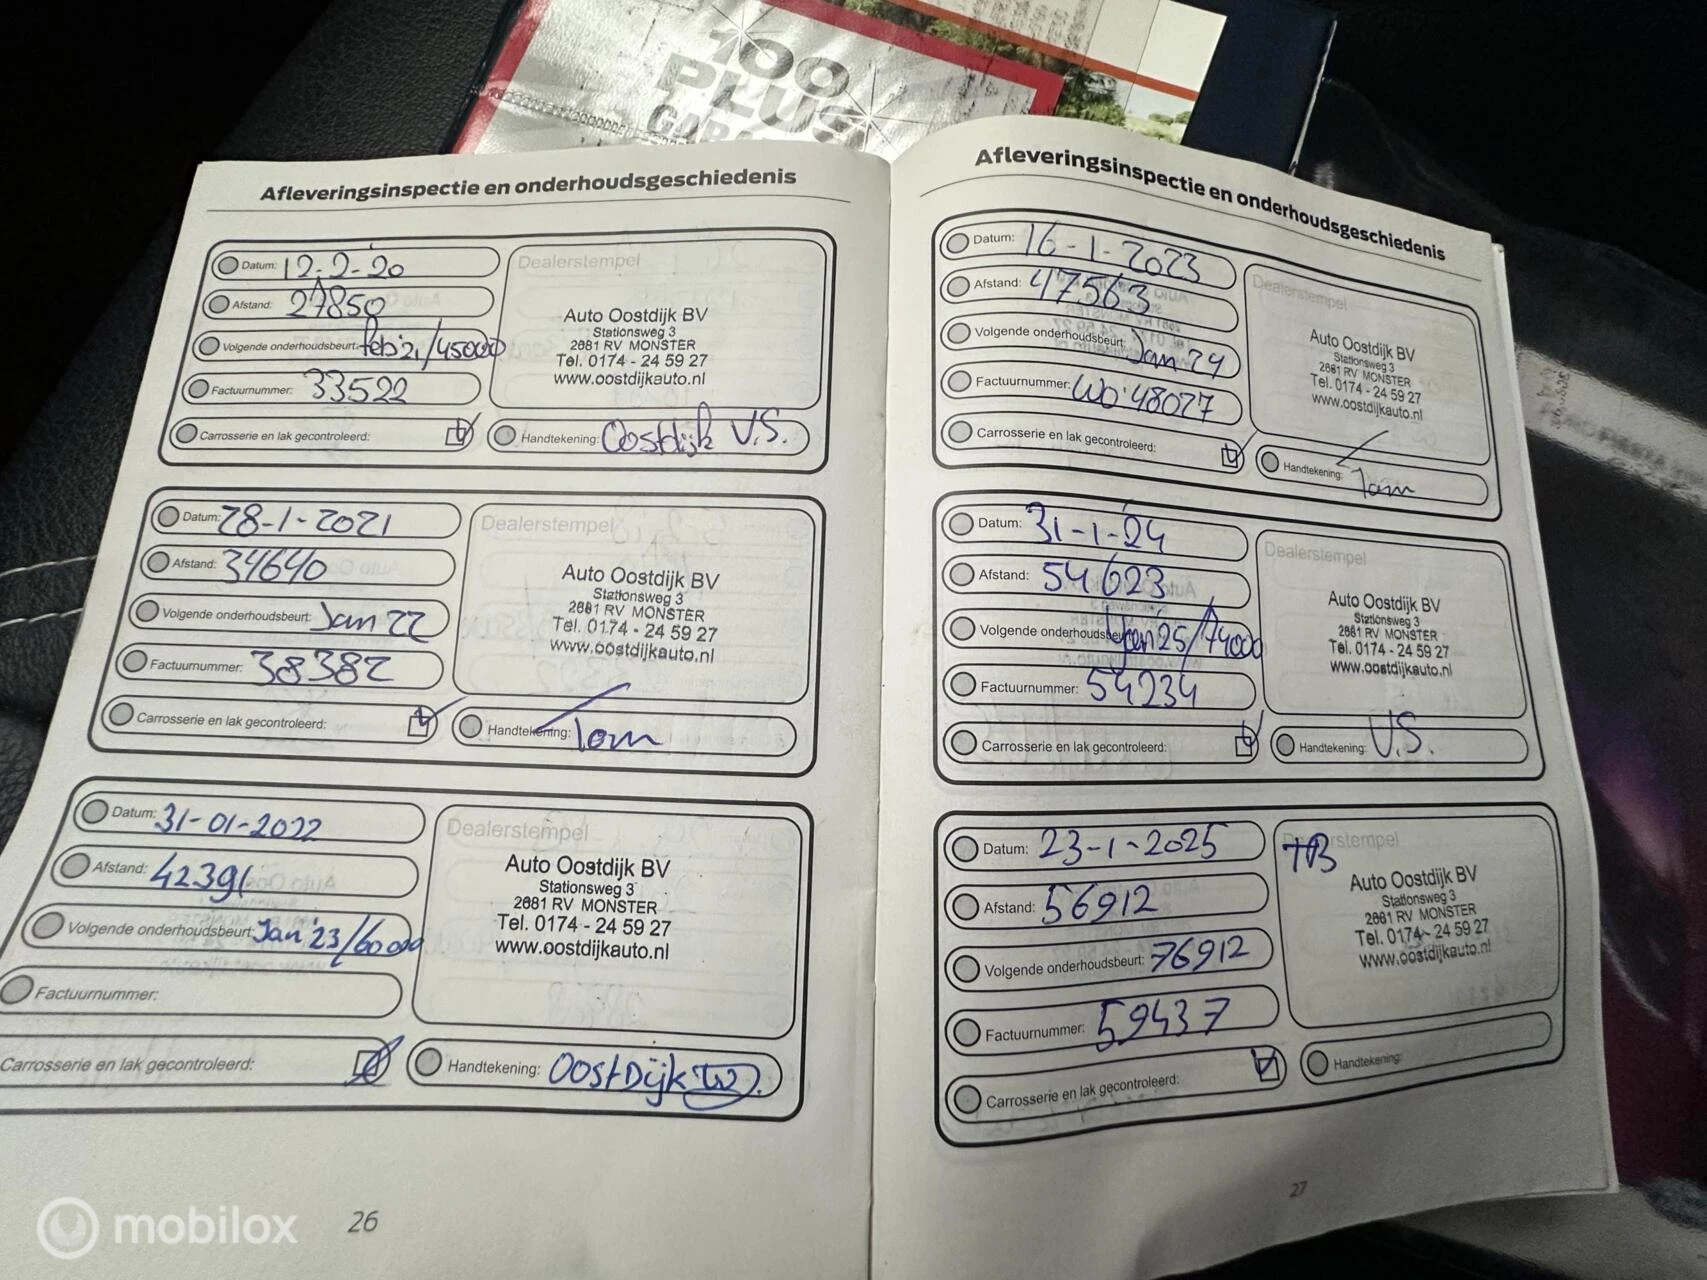 100
PLUS
Afleveringsinspectie en onderhoudsgeschiedenis
Datum: 12-2-20
Afstand: 27850
Volgende onderhoudsbeurt: feb'21/45000
Factuurnummer: 33522
Carrosserie en lak gecontroleerd:
Dealerstempel
Auto Oostdijk BV
Stationsweg 3
2681 RV MONSTER
Tel. 0174 - 24 59 27
www.oostdijkauto.nl
Handtekening: Oostdijk V.S.
Datum: 28-1-2021
Afstand: 34640
Volgende onderhoudsbeurt: Jan 22
Factuurnummer: 38382
Carrosserie en lak gecontroleerd:
Dealerstempel
Auto Oostdijk BV
Stationsweg 3
2681 RV MONSTER
Tel. 0174 - 24 59 27
www.oostdijkauto.nl
Handtekening: Tom
Datum: 31-01-2022
Afstand: 42391
Volgende onderhoudsbeurt: Jan '23/60000
Factuurnummer:
Carrosserie en lak gecontroleerd:
Dealerstempel
Auto Oostdijk BV
Stationsweg 3
2681 RV MONSTER
Tel. 0174 - 24 59 27
www.oostdijkauto.nl
Handtekening: Oostdijk
26
Afleveringsinspectie en onderhoudsgeschiedenis
Datum: 16-1-2023
Afstand: 47563
Volgende onderhoudsbeurt: Jan 24
Factuurnummer: Wo: 48027
Carrosserie en lak gecontroleerd:
Dealerstempel
Auto Oostdijk BV
Stationsweg 3
2681 RV MONSTER
Tel. 0174 - 24 59 27
www.oostdijkauto.nl
Handtekening: Tom
Datum: 31-1-24
Afstand: 54623
Volgende onderhoudsbeurt: Jan 25/74000
Factuurnummer: 54234
Carrosserie en lak gecontroleerd:
Dealerstempel
Auto Oostdijk BV
Stationsweg 3
2681 RV MONSTER
Tel. 0174 - 24 59 27
www.oostdijkauto.nl
Handtekening: V.S.
Datum: 23-1-2025
Afstand: 56912
Volgende onderhoudsbeurt: 76912
Factuurnummer: 59437
Carrosserie en lak gecontroleerd:
Dealerstempel
Auto Oostdijk BV
Stationsweg 3
2681 RV MONSTER
Tel. 0174 - 24 59 27
www.oostdijkauto.nl
Handtekening:
27
mobilox